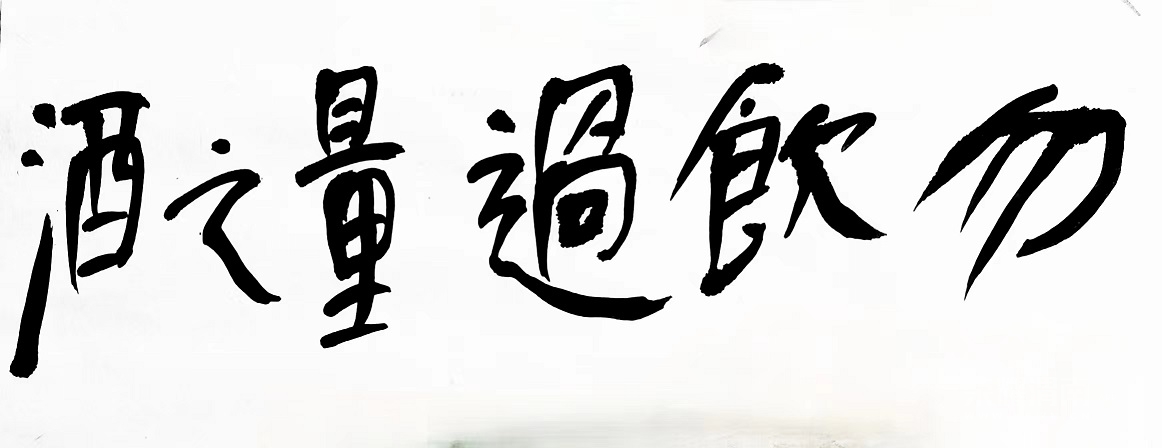 勿飲過量之酒